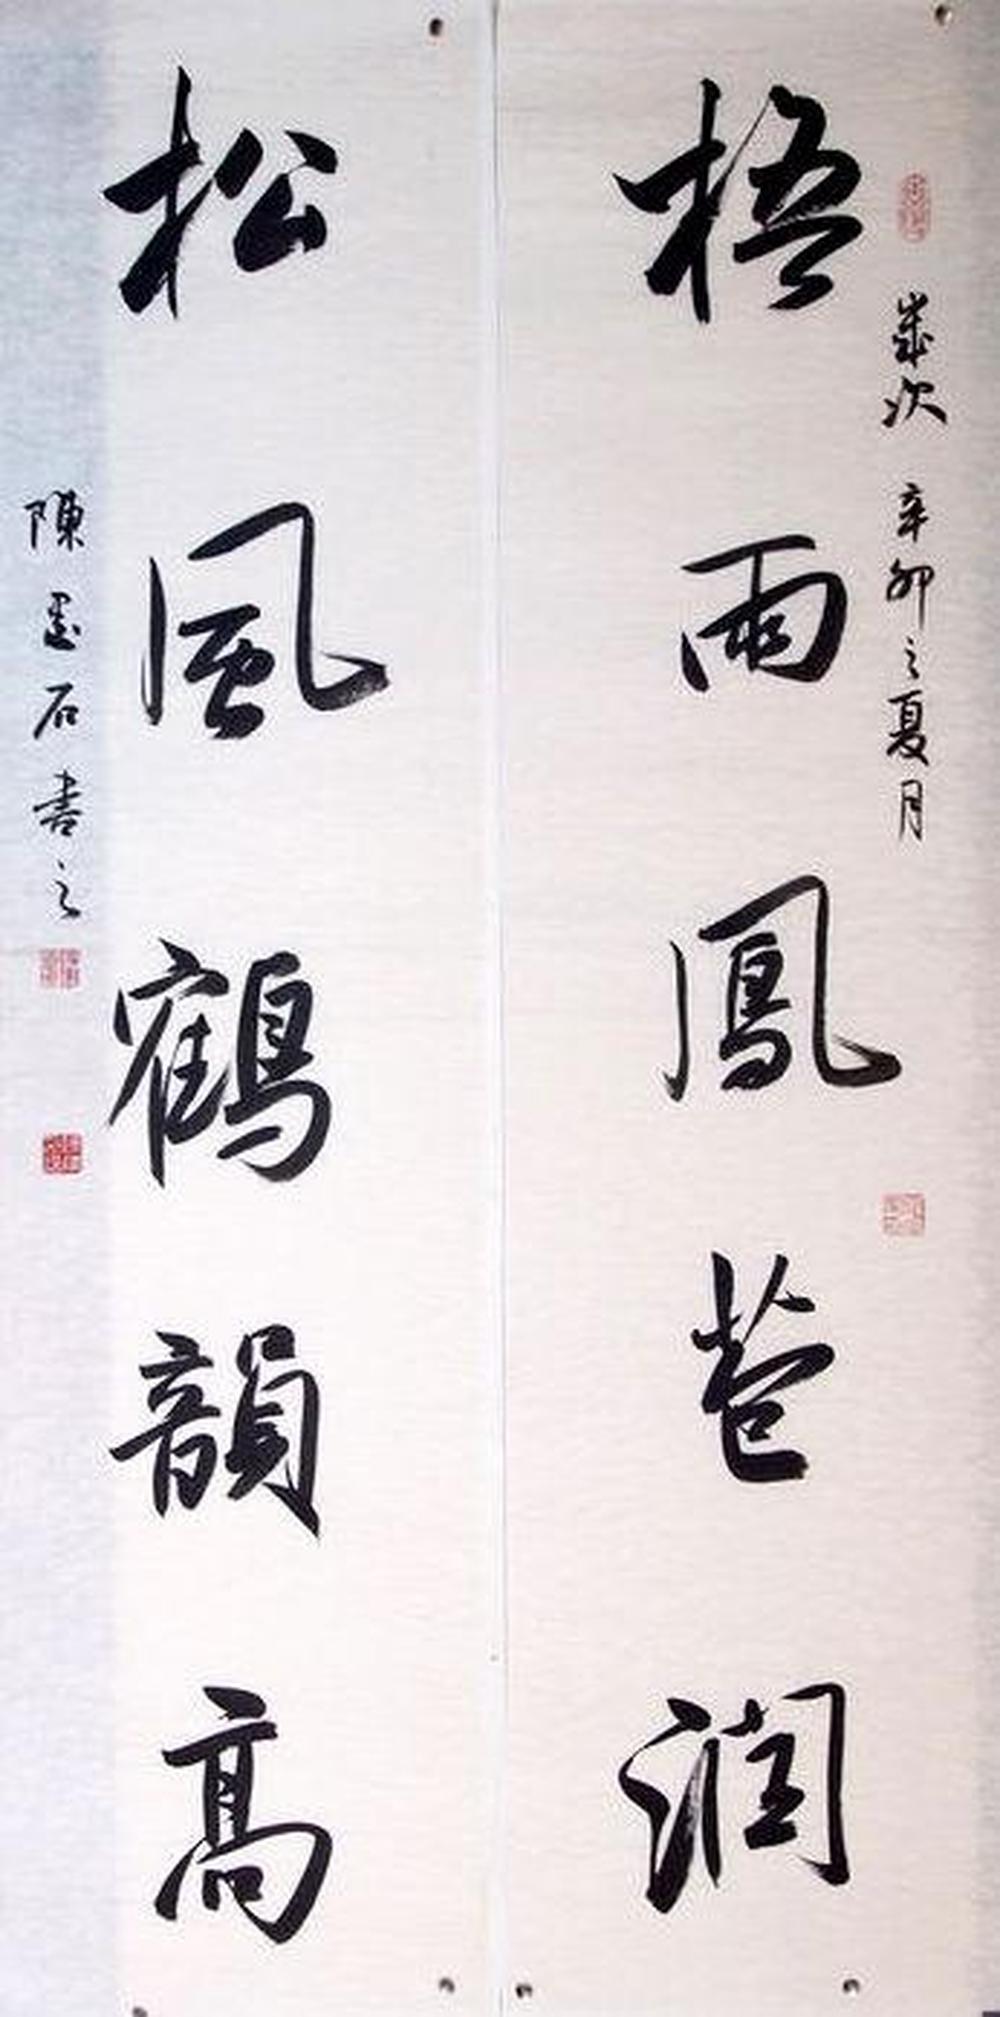 歲次辛卯之夏月
梧雨鳳苞潤
松風鶴韻高
陳墨石書之